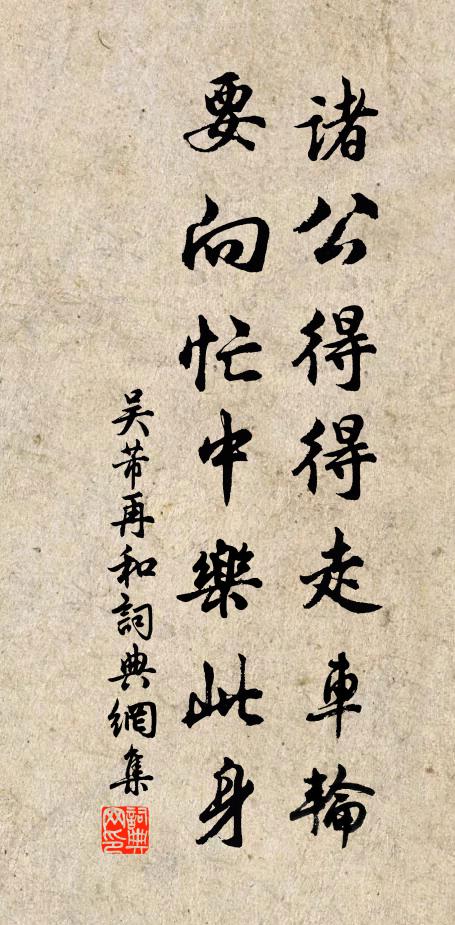 諸公得得走車輪
要向忙中樂此身
吴芾再和詞典網集
詞典網印